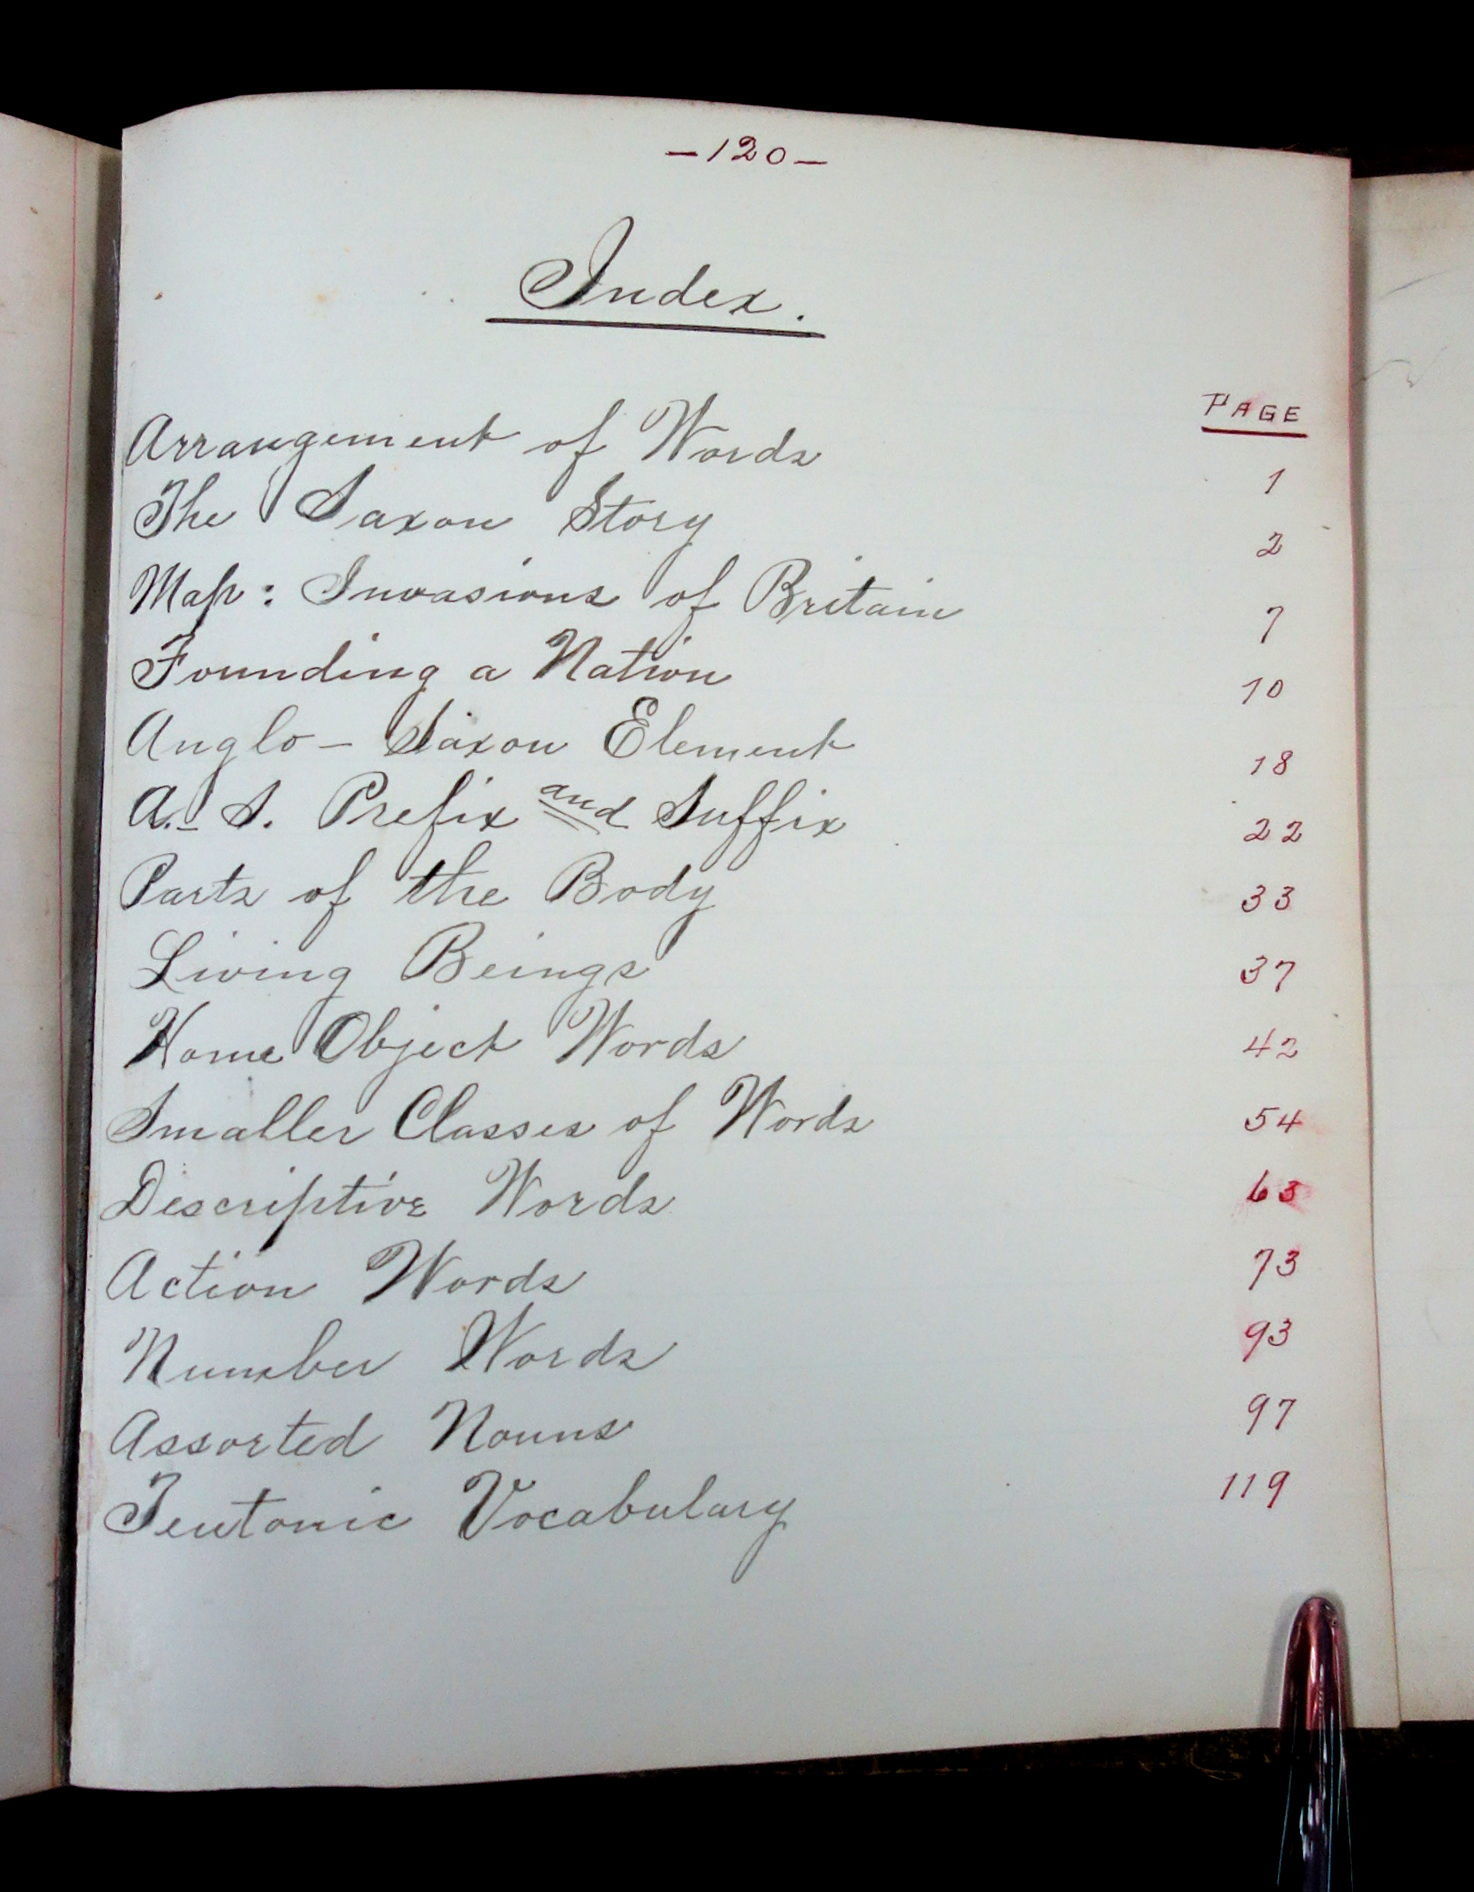 -120-
Index.
PAGE
Arrangement of Words 1
The Saxon Story 2
Map: Invasions of Britain 7
Founding a Nation 10
Anglo-Saxon Element 18
A.-S. Prefix and Suffix 22
Parts of the Body 33
Living Beings 37
Home Object Words 42
Smaller Classes of Words 54
Descriptive Words 63
Action Words 73
Number Words 93
Assorted Nouns 97
Teutonic Vocabulary 119